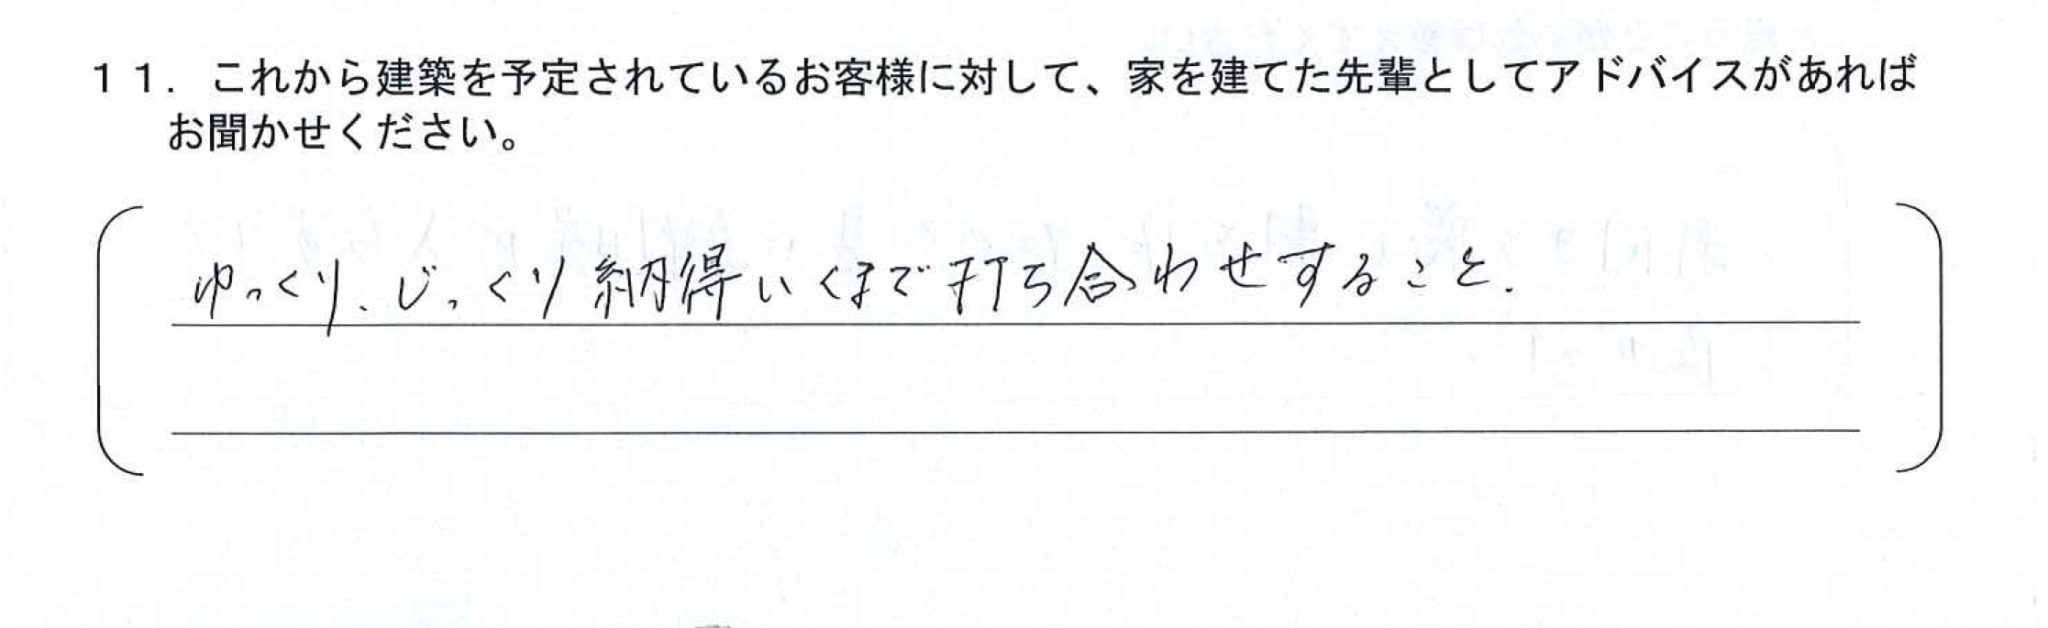 11. これから建築を予定されているお客様に対して、家を建てた先輩としてアドバイスがあれば
お聞かせください。
ゆっくり、じっくり納得いくまで打ち合わせすること.